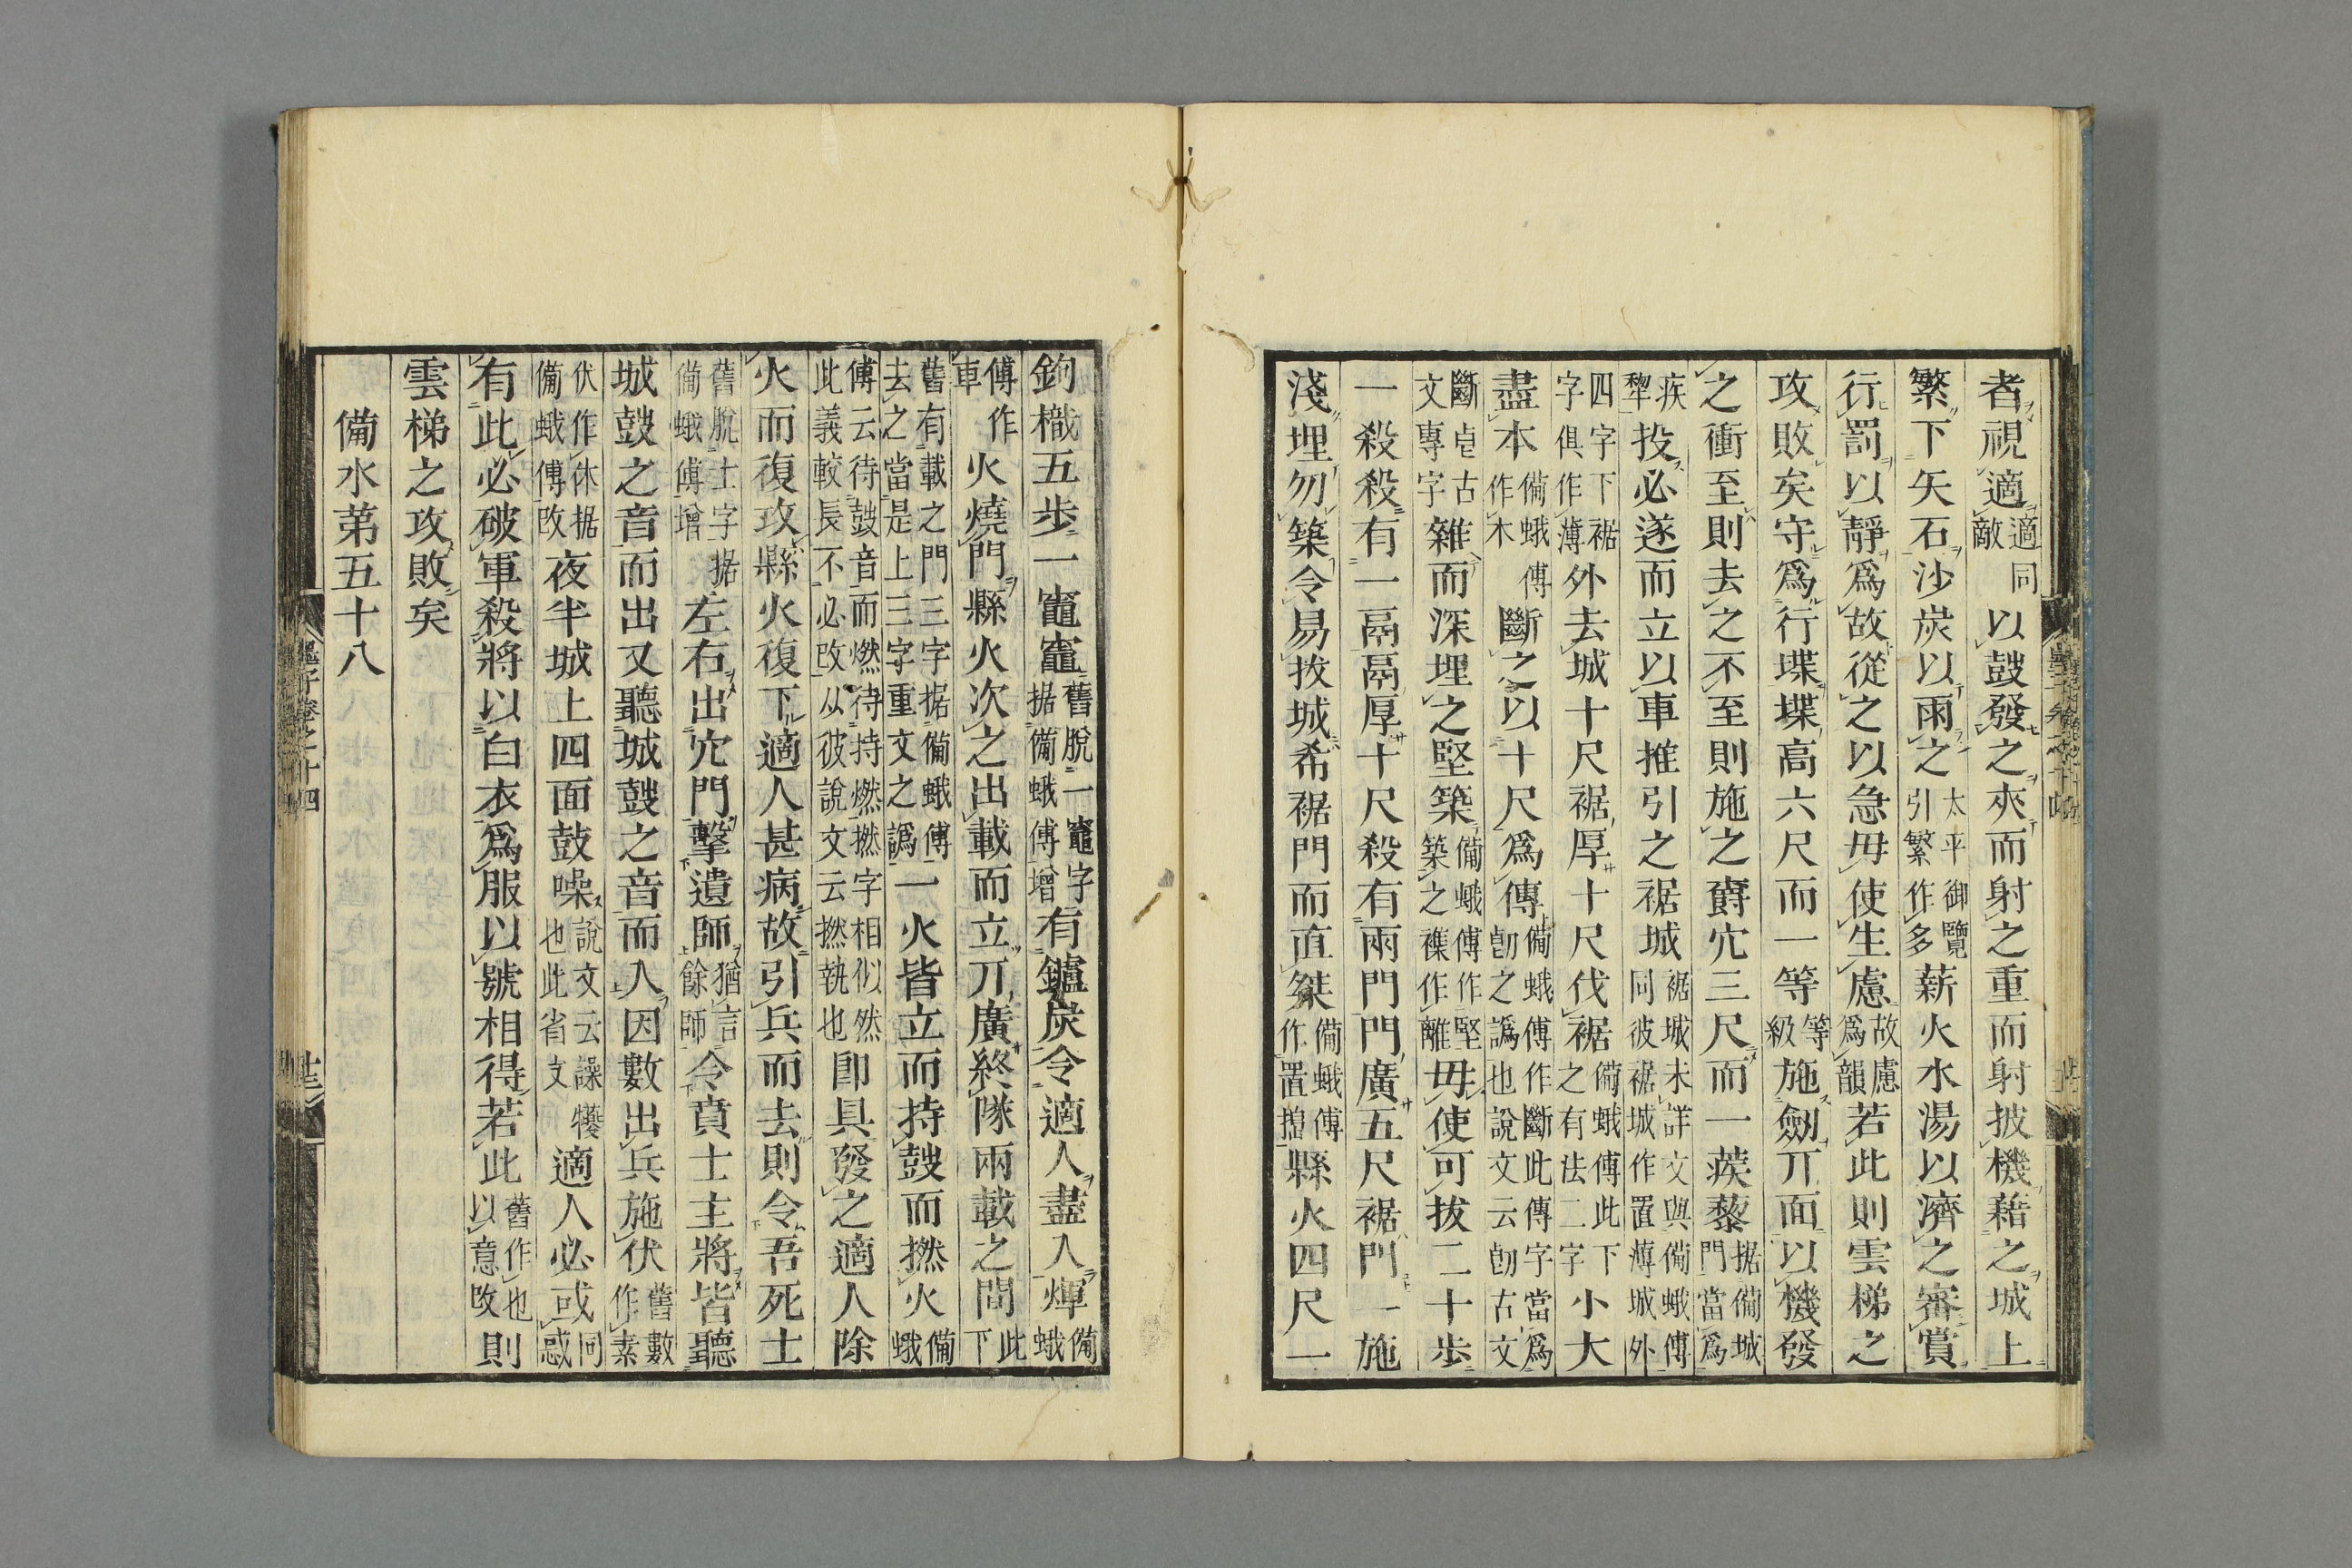 者視適適同敵以鼓發之夾而射之重而射披機藉之城上
繁下矢石沙炭以雨之太平御覽引繁作多薪火水湯以濟之審賞
行罰以靜爲故從之以急毋使生慮故慮爲韻若此則雲梯之
攻敗矣守爲行堞堞高六尺而一等等級施劒丌面以機發
之衝至則去之不至則施之爵穴三尺而一蒺藜据備城門當爲
疾犂投必遂而立以車推引之裾城裾城未詳文與備蛾傅同彼裾城作置薄城外
四字下裾字俱作薄外去城十尺裾厚十尺伐裾備蛾傅此下之有法二字小大
盡本備蛾傅作木斷之以十尺爲傳備蛾傅作斷此傳字當爲㔞之譌也說文云㔞古文
斷㫁古文專字雜而深埋之堅築備蛾傅作堅築之襍作離毋使可拔二十步
一殺殺有一鬲鬲厚十尺殺有兩門門廣五尺裾門一施
淺埋勿築令易拔城希裾門而直桀備蛾傅作置搚縣火四尺一
鉤樴五步一竈竈舊脫一竈字据備蛾傅增有鑪炭令適人盡入煇備蛾
傅作車火燒門縣火次之出載而立丌廣終隊兩載之間此下
舊有載之門三字据備蛾傅去之當是上三字重文之譌一火皆立而持鼓而撚火備蛾
傅云待鼓音而燃待持燃撚字相似然此義較長不必改从彼說文云撚執也卽具發之適人除
火而復攻縣火復下適人甚病故引兵而去則令吾死士
舊脫士字据備蛾傅增左右出穴門擊遺師猶言餘師令賁士主將皆聽
城鼓之音而出又聽城鼓之音而入因數出兵施伏舊數作素
伏作休据備蛾傅改夜半城上四面鼓噪說文云譟㩌也此省文適人必或同惑
有此必破軍殺將以白衣爲服以號相得若此舊作也以意改則
雲梯之攻敗矣
備水第五十八
墨子卷之十四